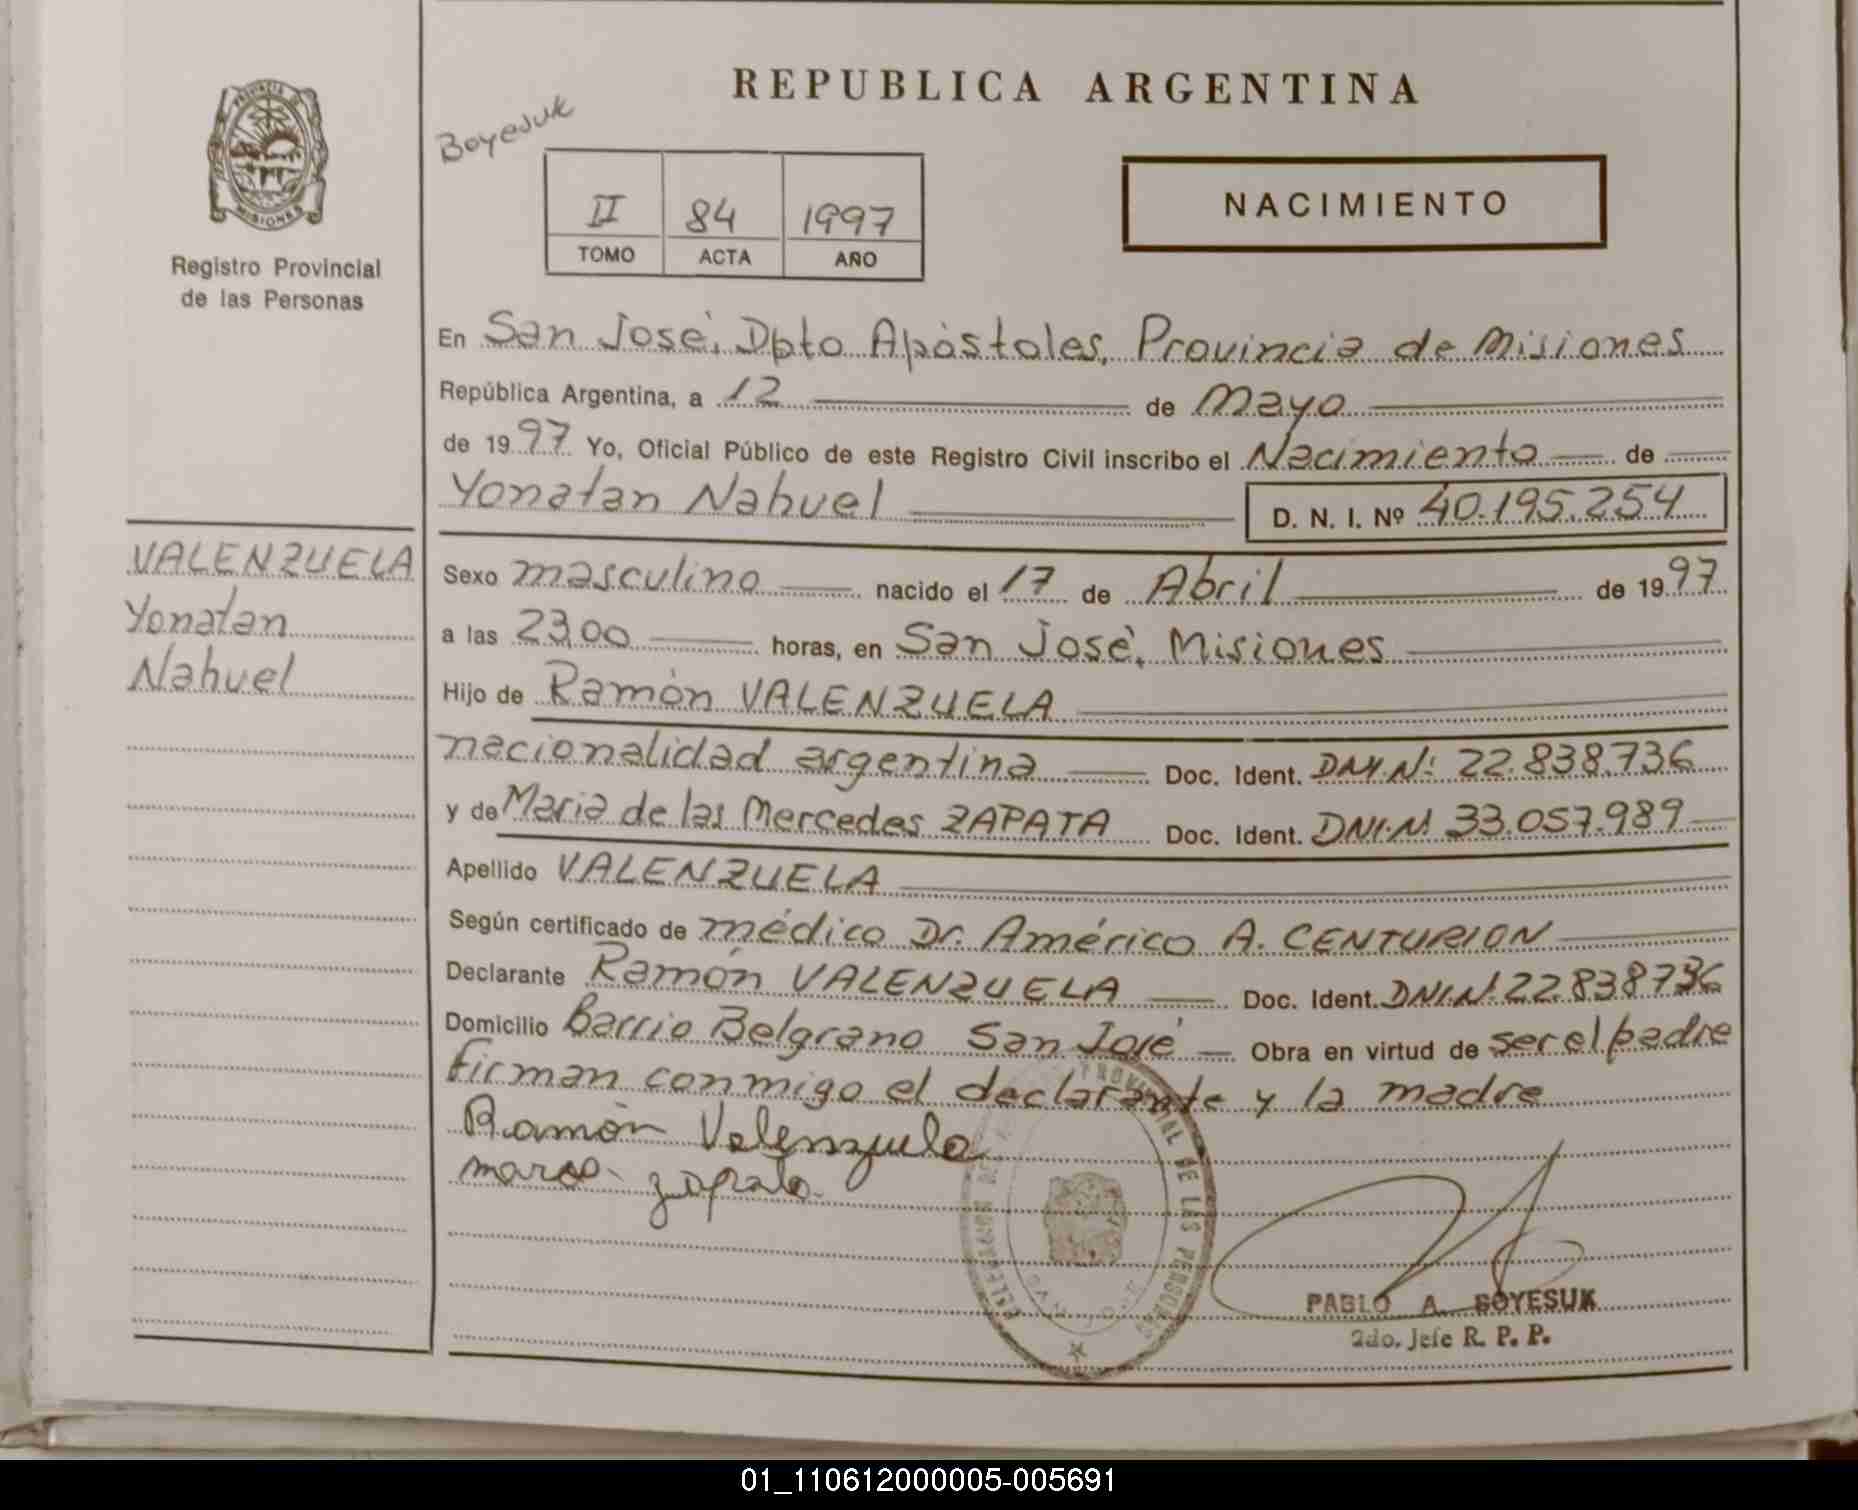 REPUBLICA ARGENTINA
Boyesuk
PROVINCIA DE
MISIONES
Registro Provincial
de las Personas
II 84 1997
TOMO ACTA AÑO
NACIMIENTO
En San José, Dpto Apóstoles, Provincia de Misiones
República Argentina, a 12 de Mayo
de 1997 Yo, Oficial Público de este Registro Civil inscribo el Nacimiento de
Yonatan Nahuel D. N. I. Nº 40.195.254
VALENZUELA
Yonatan
Nahuel
Sexo masculino nacido el 17 de Abril de 1997
a las 23,00 horas, en San José, Misiones
Hijo de Ramón VALENZUELA
nacionalidad argentina Doc. Ident. DNI.Nº 22.838.736
y de Maria de las Mercedes ZAPATA Doc. Ident. DNI.Nº 33.057.989
Apellido VALENZUELA
Según certificado de médico Dr. Américo A. CENTURION
Declarante Ramón VALENZUELA Doc. Ident. DNI.Nº 22.838736
Domicilio Barrio Belgrano San José Obra en virtud de ser el padre
Firman conmigo el declarante y la madre
Ramón Valenzuela
zapata
PROVINCIAL DE LAS PERSONAS
PABLO A. BOYESUK
2do. Jefe R. P. P.
01_110612000005-005691